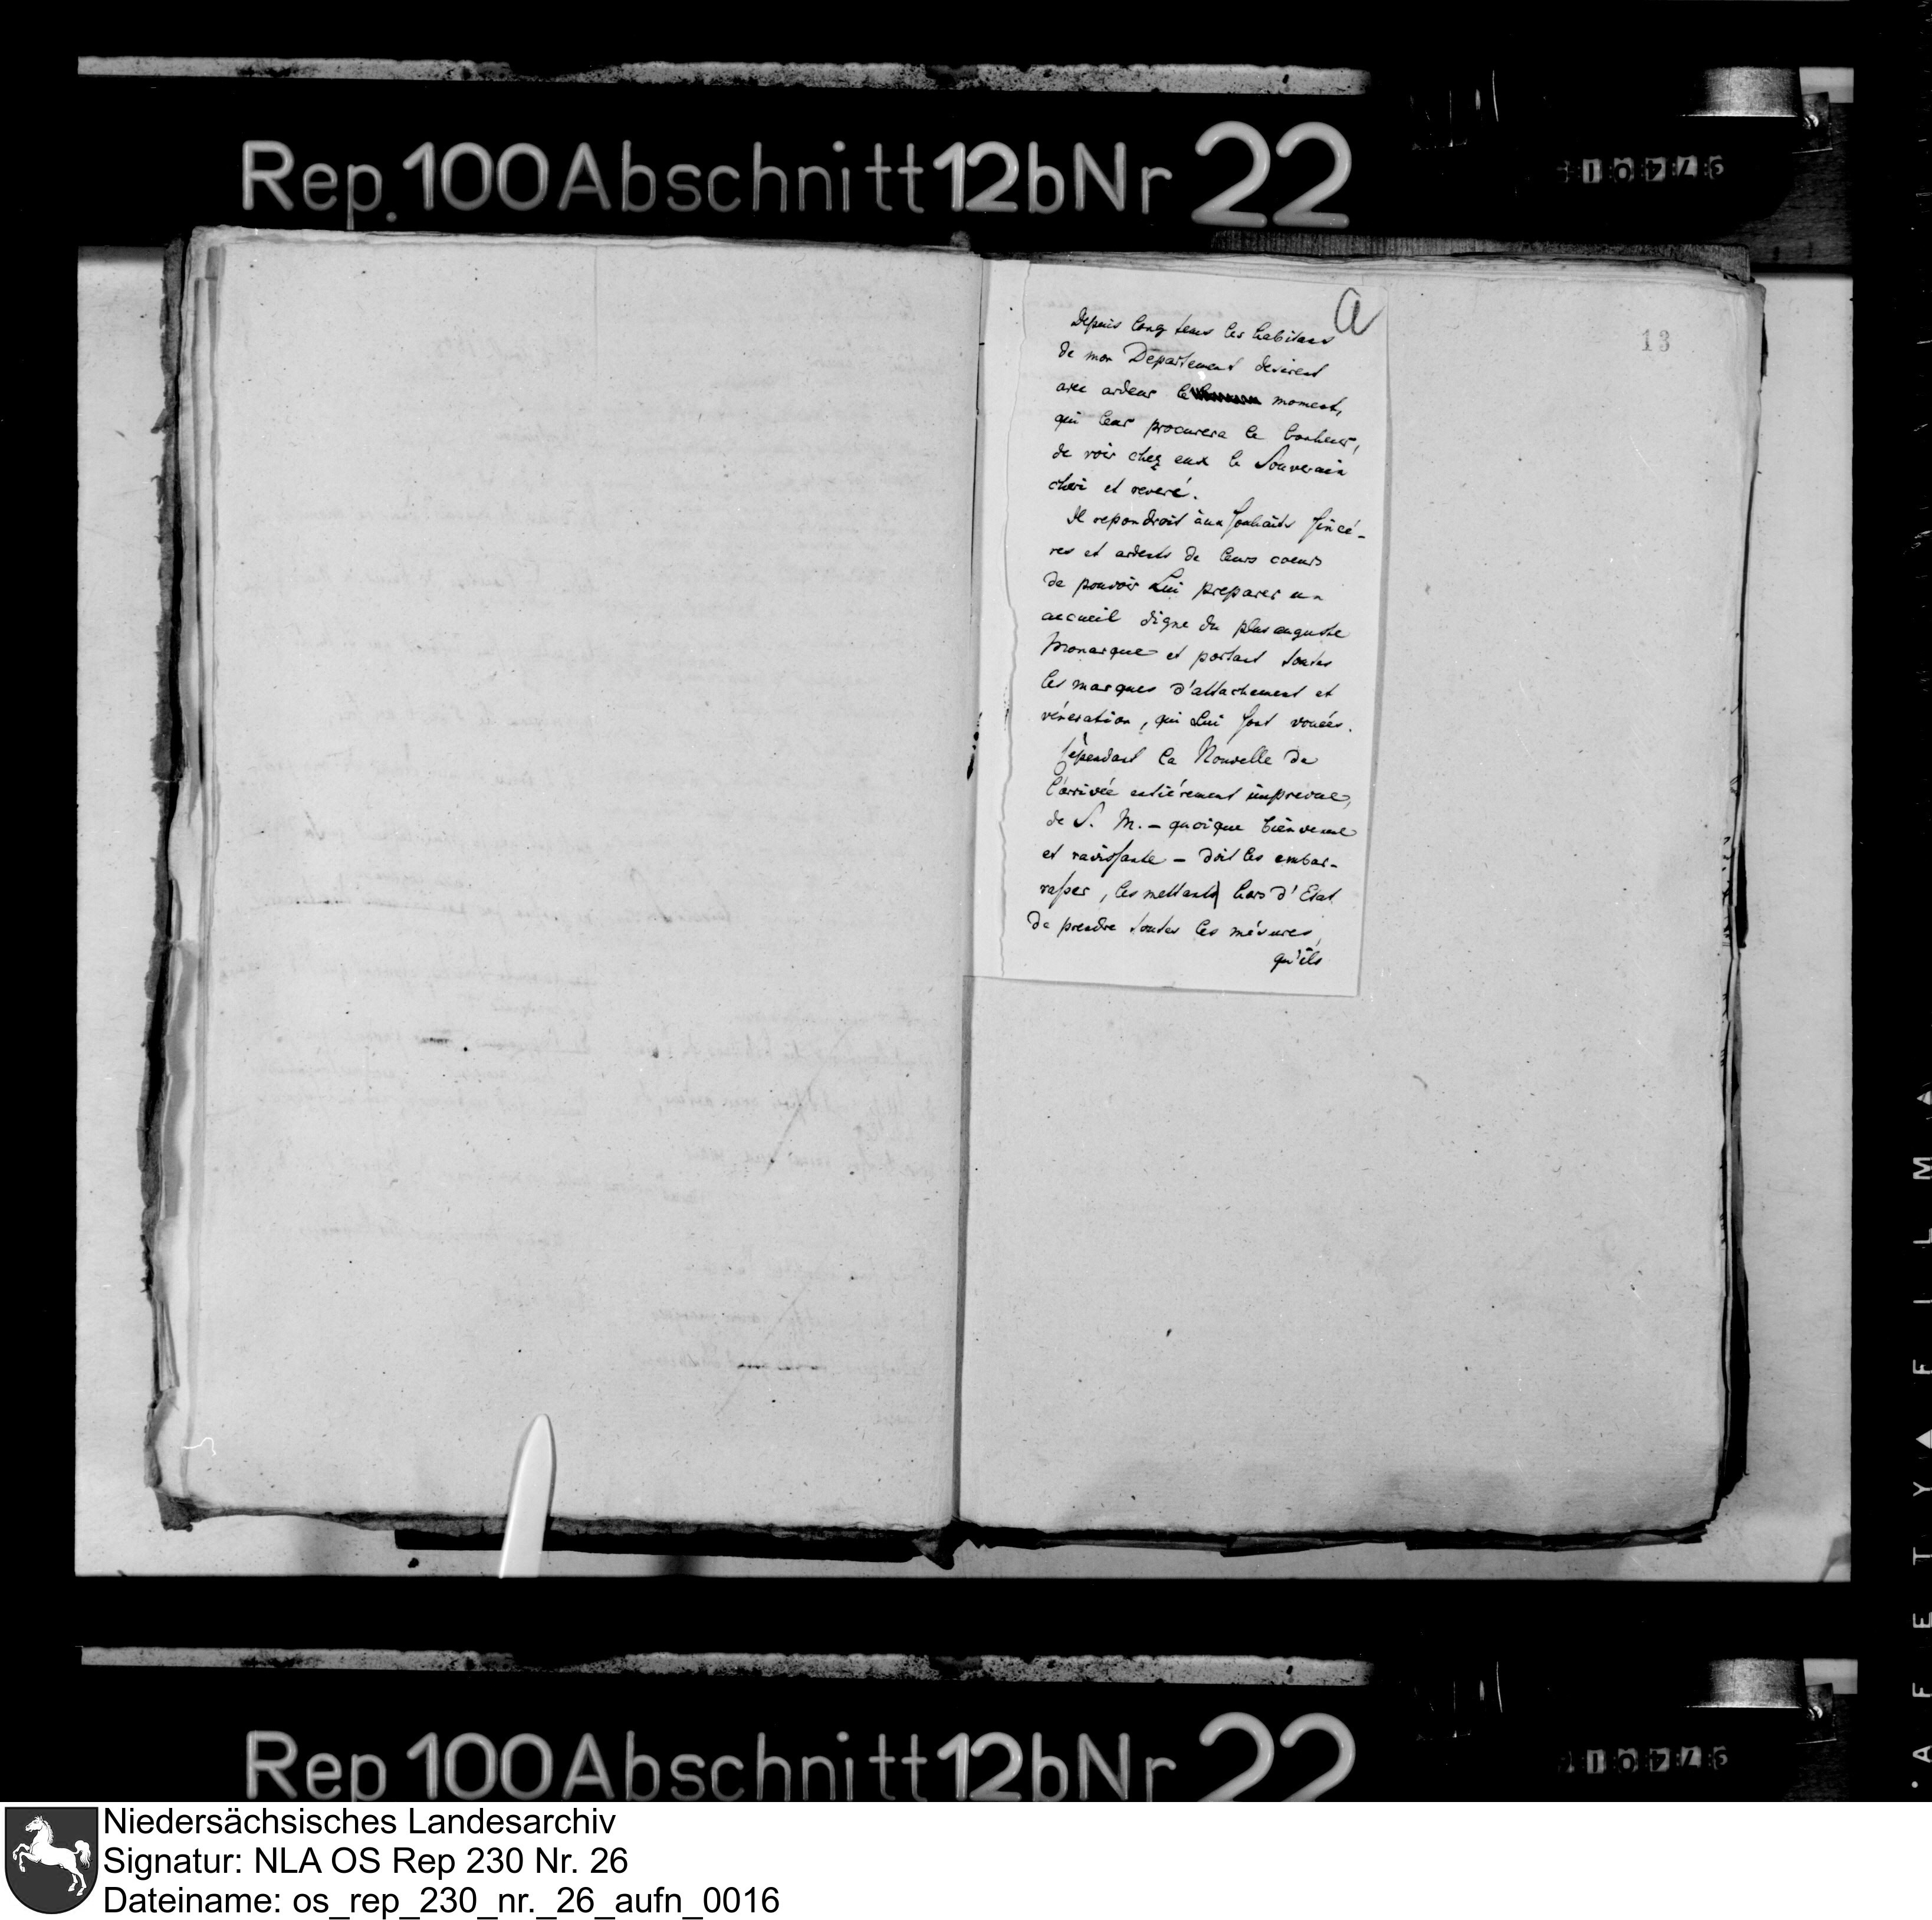 Rep. 100 Abschnitt 12b Nr 22
a
13
Depuis long tems les habitans
de mon Departement desirent
avec ardeur le moment,
qui leur procurera le bonheur,
de voir chez eux le Souverain
cheri et reveré.
Il repondroit àux souhaits sincé-
res et ardents de leurs coeurs
de pouvoir Lui preparer un
accueil digne du plus auguste
Monarque et portant toutes
les marques d'attachement et
véneration, qui Lui sont vouées.
Cependant la Nouvelle de
l'arrivée entiérement imprevue,
de S. M. – quoique bienvenue
et ravissante – doit les embar-
rasser, les mettant hors d'Etat
de prendre toutes les mésures,
qu'ils
Rep 100 Abschnitt 12b Nr 22
SAFETY FILM
Niedersächsisches Landesarchiv
Signatur: NLA OS Rep 230 Nr. 26
Dateiname: os_rep_230_nr._26_aufn_0016